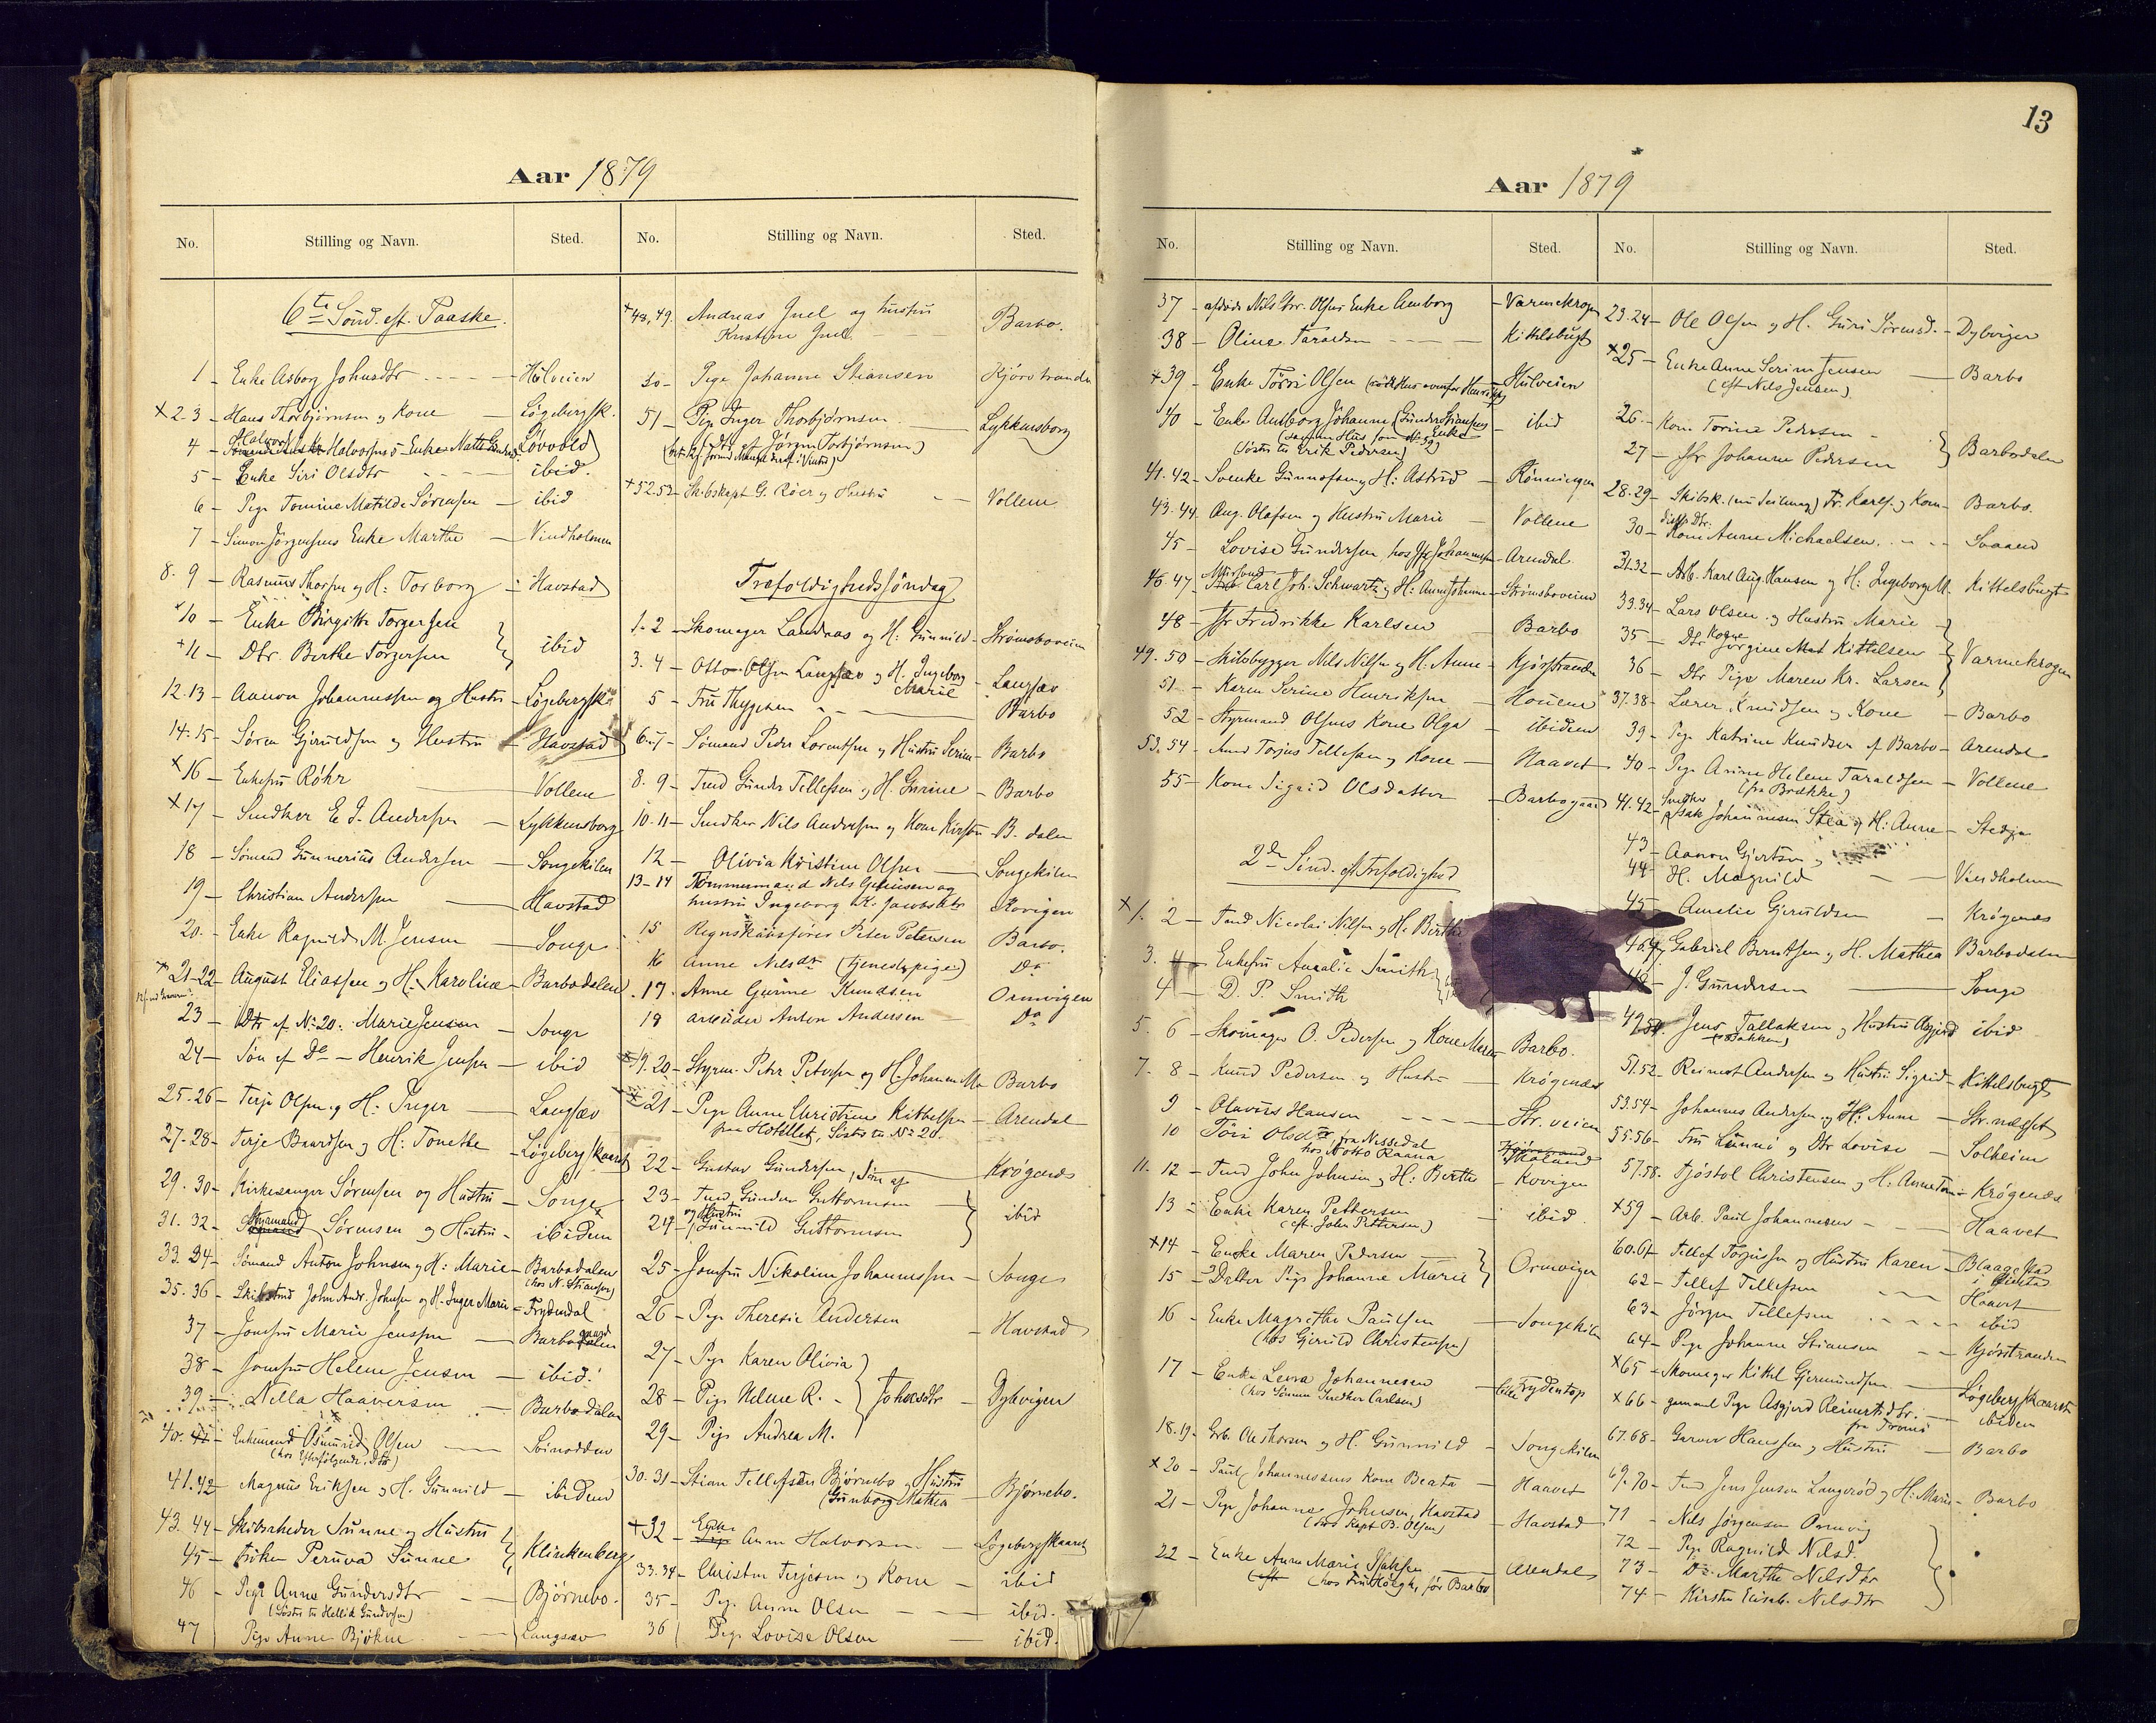 Aar 1879
No. Stilling og Navn. Sted.
6te Sønd. eft. Paaske.
1 - Enke Asborg Johnsdtr - Hulveien
×2.3 - Hans Thorbjørnsen og Kone - Løgebergsk.
4 - Halvorsens Enke Løvvold
5 - Enke Siri Olsdtr - ibid.
6 - Pige Tomine Matilde Sørensen - ibid
7 - Simon Jørgensens Enke Marthe - Vindholmen
8. 9 - Rasmus Thorsen og H: Torborg - Havstad
×10 - Enke Birgitte Torgersen
+11 - Dtr. Berthe Torgersen } ibid
12.13 - Aanon Johannessen og Hustru - Løgebergsk.
14.15 - Søren Gjeruldsen og Hustru - Havstad
×16 - Enkefru Röhr - Vollene
×17 - Snedker E. J. Andersen - Lykkensborg
18 - Sømand Gunnerius Andersen - Songekilen
19 - Christian Andersen - Havstad
20. - Enke Ragnild M. Jensen - Songe
×21-22 - August Eliassen og H. Karoline - Barbodalen
23 - Dtr af No 20. Marie Jensen - Songe
24 - Søn af Do - Henrik Jensen - ibid
25.26 - Terje Olsen og H: Inger - Langsæv
27.28 - Terje Baardsen og H: Tonethe - Løgebergskaaret
29.30 - Kirkesanger Sørensen og Hustru - Songe
31.32 - Styrmand Sørensen og Hustru - ibidem
33.34 - Sømand Anton Johnsen og H: Marie - Barbodalen
(hos N. Stiansen)
35.36 - Skibstmd John Andr. Johnsen og H. Inger Marie - Frydendal
37 - Jomfru Marie Jenssen - Barbogaard
38 - Jomfru Helene Jensen - ibid.
39 - Nella Haaversen - Barbodalen
40. - Enkemand Osmund Olsen - Svinodden
(hos Efterfølgende, Dtr)
41.42 - Magnus Eriksen og H. Gunnild - ibidem
43.44 - Skibsrheder Sunne og Hustru
45 - Frøken Peruva Sunne } Klinkenberg
46 - Pige Anne Gundersdtr - Bjørnebo.
(Søster til Hellik Gundersen)
47 Pige Anne Bjørkne - Langsæv
No. Stilling og Navn. Sted.
+48,49. Andreas Juel og hustru
Kristine Juel Barbo.
50 - Pige Johanne Stiansen - Kjørstranden
51 - Pige Inger Thorbjørnsen - Lykkensborg
(Dtr af Jørgen Torbjørnsen)
+52.53 - Skibskapt G. Røer og Hustru - Vollene
Trefoldighedssøndag
1-2 - Skomager Landraas og H: Gunnild - Strømsboveien
3. 4 - Otto Olsen Langsæv og H. Ingeborg
Marie - Langsæv
5 - Fru Thygesen - Barbo
6-7 - Sømand Peder Lorentsen og Hustru Serine - Barbo
8. 9 - Tmd Gunder Tellefsen og H. Gurine - Barbo
10.11 - Snedker Nils Andersen og Kone Kirsten - B. dalen
12 - Olivia Kristine Olsen - Songekilen
13-14 Tømmermand Nils
hustru Ingeborg K. Jacobsdtr Kovigen
15 Regnskabsfører Peter Petersen Barbo.
16 Anne Nilsdtr (tjenestepige) Do
17. Anne Gurine Knudsen Ormvigen
18 arbeider Anton Andersen Do
×19.20 - Styrm. Peter Petersen og H. Johanne M. Barbo
×21 - Pige Anne Christine Kittelsen - Arendal
fra Hotellet, Søster til No 20.
22 - Gustav Gundersen, Søn af Krøgenes
23 - Tmd Gunder Guttormsen
24 - og Hustru Gunnild Guttormsen } ibid
25 - Jomfru Nikoline Johannessen - Songe
26 - Pige Theresie Andersen - Havstad
27 - Pige Karen Olivia
28 - Pige Helene R. } Johnsdtr - Dybvigen
29 - Pige Andrea M.
30.31 - Stian Tellefsen Bjørnebo og Hustru
Gunborg Mathea - Bjørnebo.
+32 - Enke Anne Halvorsen - Løgebergskaaret
33.34 - Christen Terjesen og Kone - ibid
35 - Pige Anne Olsen - ibid.
36 Pige Lovise Olsen - ibid.
13
Aar 1879
No. Stilling og Navn. Sted.
37 - afdøde Nils Olsens Enke - Varmekrogen
38 - Oline Taraldsen - Kittelsbugt
+39 - Enke Törri Olsen - Hulveien
40 - Enke Anlborg Johanne (Gunder Stiansens Enke - ibid
(samme Hus som
(Søster til Erik Pedersen)
41.42 - Svenke Gunnofsen og H: Astrid - Rønningen
43.44. Aug. Olafsen og Hustru Marie - Vollene
45 - Lovise Gundersen hos Jfr Johannessen - Arendal
46.47 - Carl Joh. Schwartz og H: Anne Johanne - Strømsboveien
48 - Jfr Fredrikke Karlsen - Barbo
49.50 - Skibsbygger Nils Nilsen og H. Anne - Kjørstranden
51 - Karen Serine Henriksen - Houene
52 - Styrmand Olsens Kone Olga - ibidem
53.54 - Tmd Torjus Tellefsen og Kone - Haavet
55 - Kone Sigrid Olsdatter - Barbogaard
2den Sønd. eft Trefoldighed
×1. 2 - Tmd Nicolai Nilsen og H. Berthe
3. - Enkefru Amalie Smith
4 - D. P. Smith
5. 6 - Skomager O. Pedersen og Kone Maren - Barbo.
7. 8 - Knud Pedersen og Hustru - Krøgenes
9 - Olavus Hansen - Str. veien
10 Töri Olsdtr, fra Nissedal
hos Notto Raana
11. 12 - Tmd John Johnsen og H: Berthe - Kovigen
13 - Enke Karen Pettersen - ibid.
(eft. John Pettersen)
×14 - Enke Maren Pedersen
15 - Datter Pige Johanne Marie } Ormvigen
16 - Enke Magrethe Paulsen - Songekilen
(hos Gjeruld Christensen)
17 - Enke Lena Johannesen - lille Frydentop
(hos Snedker Carlsen)
18.19 - Ole Thorsen og H. Gunnild - Songekilen
×20 - Paul Johannessens Kone Beata - Haavet
21 - Pige Johanne Johnsen, Havstad - Havstad
(hos Kapt B. Olsen)
22 - Enke Anne Marie Isaksen - Arendal
(hos Fru Høegh, før Barbo
No. Stilling og Navn. Sted.
23.24 - Ole Olsen og H. Guri Sørensd. - Dybvigen
×25 - Enke Anne Serine Jensen - Barbo
(eft Nils Jensen)
26. - Kone Torine Pedersen
27 - Jfr Johanne Pedersen } Barbodalen
28.29 - Skibsk. (nu Seilmag.) Fr. Karls. og Kone - Barbo.
30 - Kone Anne Michaelsen - Svaaen
31.32 - Arb. Karl Aug. Hansen og H: Ingeborg M. Kittelsbugt
33.34 - Lars Olsen og Hustru Marie
35 - Dtr Jørgine Kittelsen
36 - Dtr Pige Maren Kr. Larsen } Varmekrogen
37.38 - Lærer Knudsen og Kone - Barbo
39 - Pige Katrine Knudsen af Barbo - Arendal
40 - Pige Anne Helene Taraldsen - Vollene
(fra Brække)
41.42 Snedker Isak Johannesen Stea og H: Anne - Stedje
43 - Aanon Gjertsen og
44 - H. Magnild - Vindholmen
45 - Amalie Gjeruldsen - Krøgenes
46.47 Gabriel Berntsen og H. Mathea Barbodalen
48 - J. Gundersen - Songe
49.50. Jens Tallaksen og Hustru Asgjerd ibid.
(Bakken)
51.52 - Reinert Andersen og Hustru Sigrid - Kittelsbugt
53.54 - Johannes Andersen og H: Anne - Str.næsset
55.56 - Fru Sunne og Dtr Lovise - Solheim
57.58. Tjøstol Christensen og H. Anne Tom. - Krøgenes
×59 - Arb. Paul Johannesen - Haavet
60.61 Tellef Torjussen og Hustru Karen - Blaagestad
62 - Tellef Tellefsen - Haavet
63 - Jørgen Tellefsen - ibid
64 - Pige Johanne Stiansen - Kjøsstranden
×65 - Skomager Kittel Gjermundsen - Løgebergskaaret
×66 - gammel Pige Asgjerd Reinertsdtr. - ibidem
fra Tromø
67.68 - Garver Hanssen og Hustru - Barbo
69.70 - Tmd Jens Jensen Langerød og H: Marie - Barbo
71 - Nils Jørgensen Ormvig
72 - Pige Ragnild Nilsd.
73 - Do Marthe Nilsdtr
74 - Kirsten Elisab. Nilsdtr }